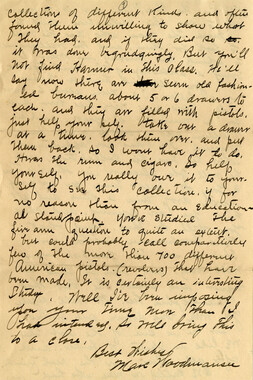 collection of different kinds and often
found them unwilling to show what
they had, and if they did so
it was done begrudgingly, But you'll
not find Harmer in this class. He'll
say now there are seven old fashion-
ed bureaus, about 5 or 6 drawers to
each, and they are filled with pistols.
just help your self, take out a drawer
at a time, look them over, and put
them back. So I wont have it to do.
the rum and cigars. So help
yourself. You really owe it to your-
self to see this collection, if for
no reason then from an education-
al standpoint. You'd studied the
fire arm question to quite an extent,
but could probably call comparatively
few of the more than 700 different
American pistols (revolvers) that have
been made, It is certainly an interesting
study. Well I've been imposing
upon your time more than I
had intended, So will bring this
to a close.
Best Wishes
Marc Woodmansee